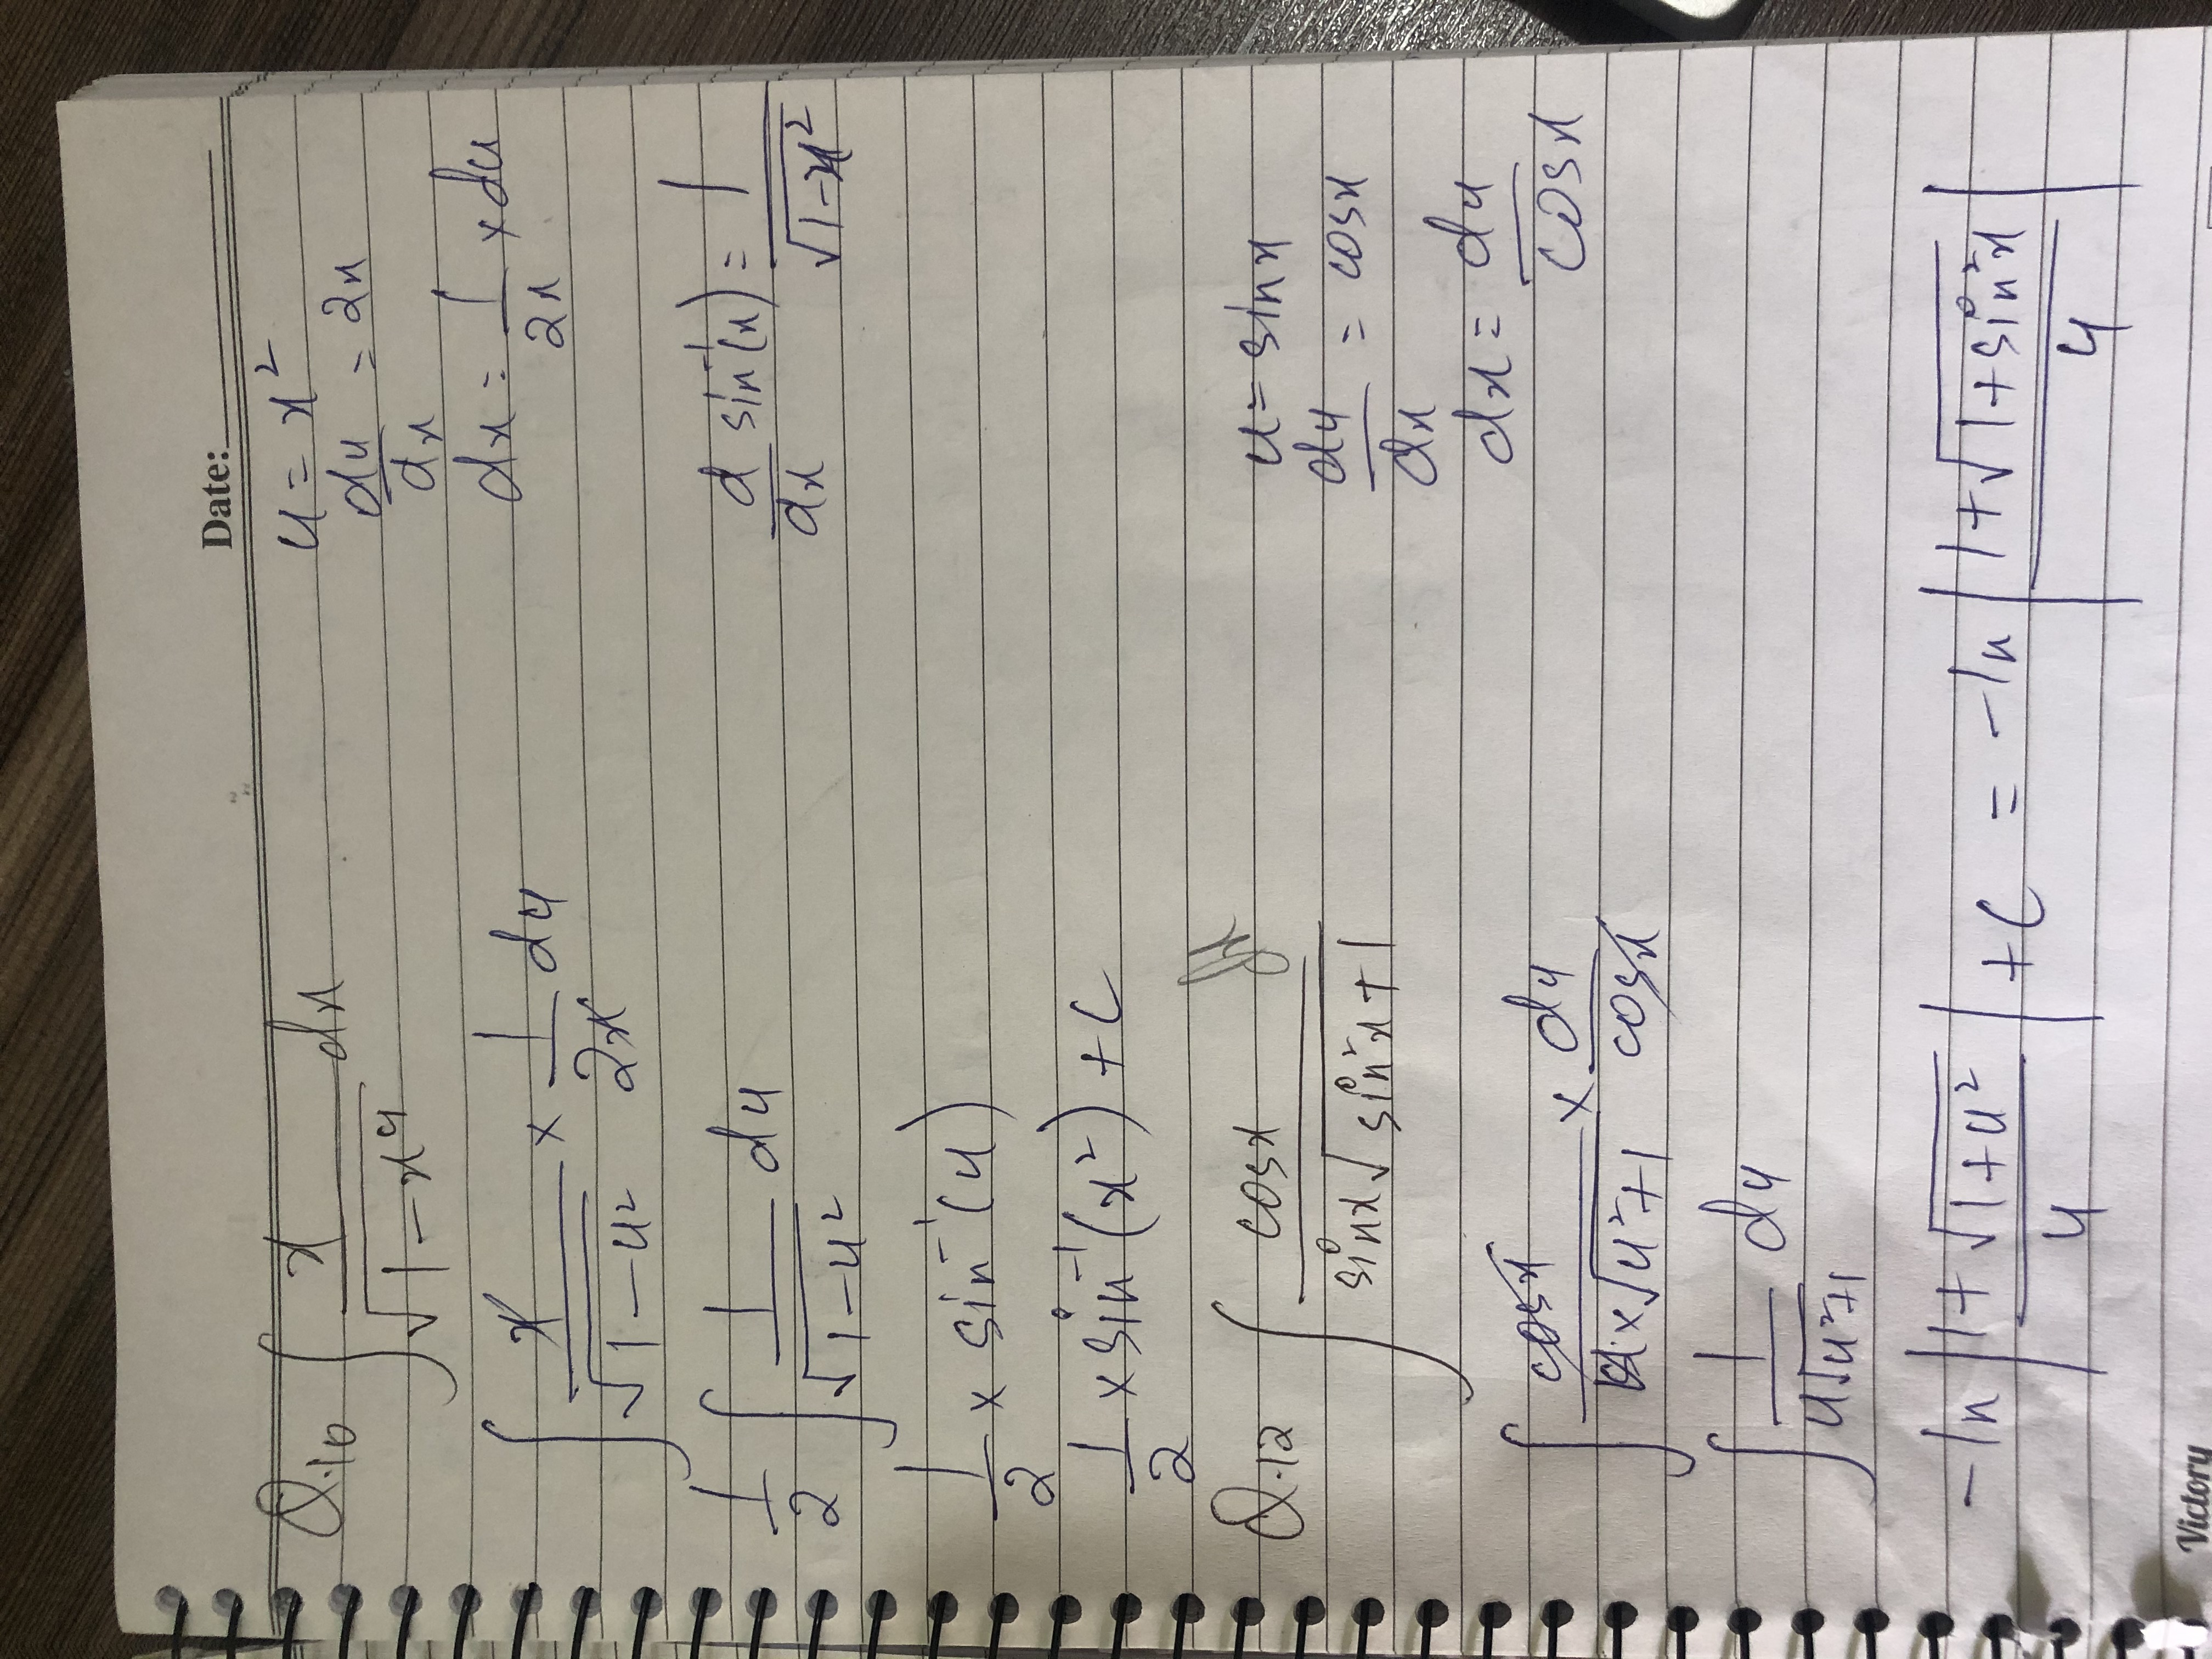 Date:
Q.10 ∫ x/√(1-x⁴) dx
u = x²
du/dx = 2x
dx = 1/2x × du
∫ x/√(1-u²) × 1/2x du
1/2 ∫ 1/√(1-u²) du
d/dx sin⁻¹(x) = 1/√(1-x²)
1/2 × sin⁻¹(u)
1/2 × sin⁻¹(x²) + C
Q.12 ∫ cosx/(sinx√(sin²x+1)) dx
u = sinx
du/dx = cosx
dx = du/cosx
∫ cosx/(u×√(u²+1)) × du/cosx
∫ 1/(u√(u²+1)) du
-ln |(1+√(1+u²))/u| + C = -ln |(1+√(1+sin²x))/u|
Victory